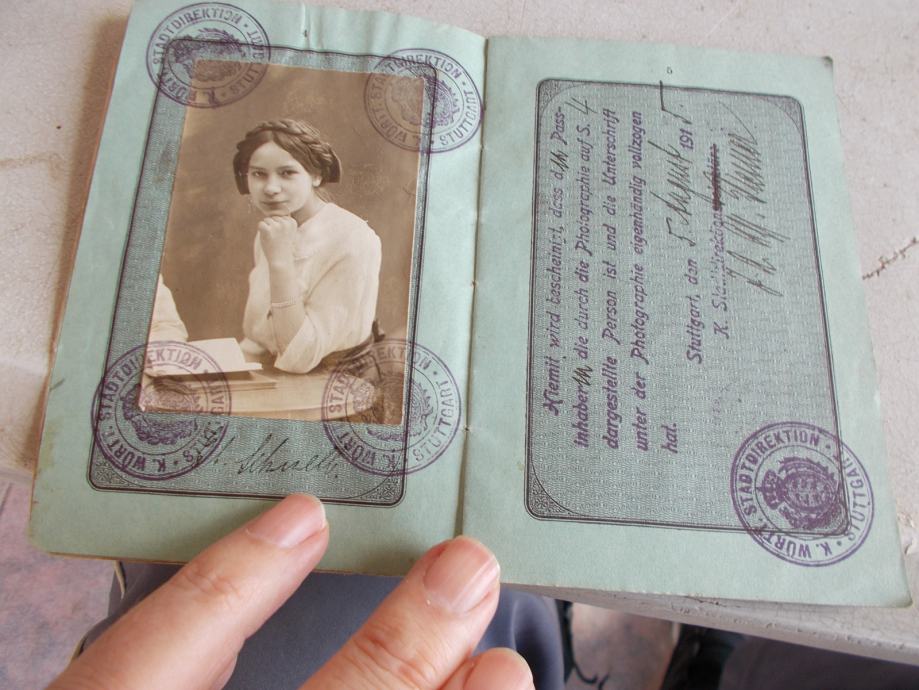 K. WÜRTT. STADTDIREKTION • STUTTGART •
K. WÜRTT. STADTDIREKTION • STUTTGART •
K. WÜRTT. STADTDIREKTION • STUTTGART •
K. WÜRTT. STADTDIREKTION • STUTTGART •
Hiemit wird bescheinigt, dass d Pass-
inhaber die durch die Photographie auf S. 4
dargestellte Person ist und die Unterschrift
unter der Photographie eigenhändig vollzogen
hat.
Stuttgart, den 5. 1915.
K. Stadtdirektion
K. WÜRTT. STADTDIREKTION • STUTTGART •